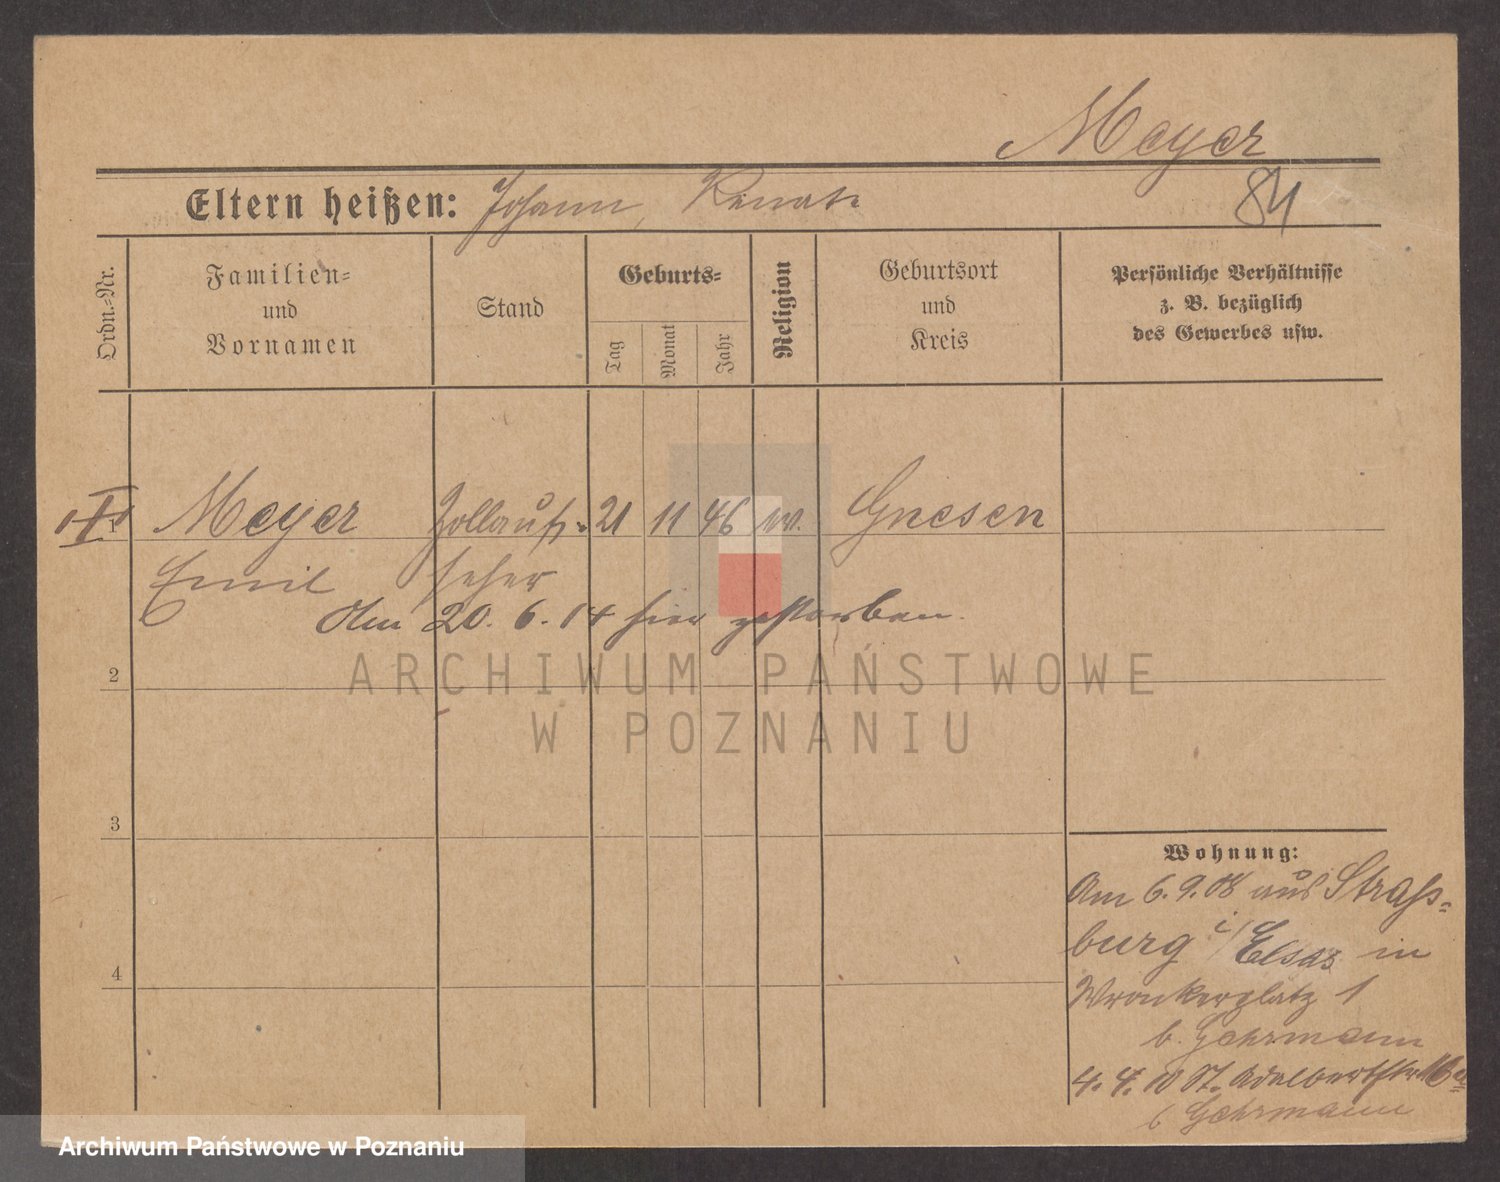 Meyer
84
Eltern heißen: Johann, Renate
Ordn.-Nr.
Familien-
und
Vornamen
Stand
Geburts-
Tag
Monat
Jahr
Religion
Geburtsort
und
Kreis
Persönliche Verhältnisse
z. B. bezüglich
des Gewerbes usw.
1 Meyer Zollauf- 21 11 46 ev. Gnesen
Emil seher
Am 20. 6. 14 hier gestorben.
2
3
4
Wohnung:
Am 6.9.08 aus Straß-
burg i/Elsas in
Wronkerplatz 1
b. Gehrmann
4. 4. 10 St. Adalbertstr.
b Gehrmann
ARCHIWUM PAŃSTWOWE
W POZNANIU
Archiwum Państwowe w Poznaniu